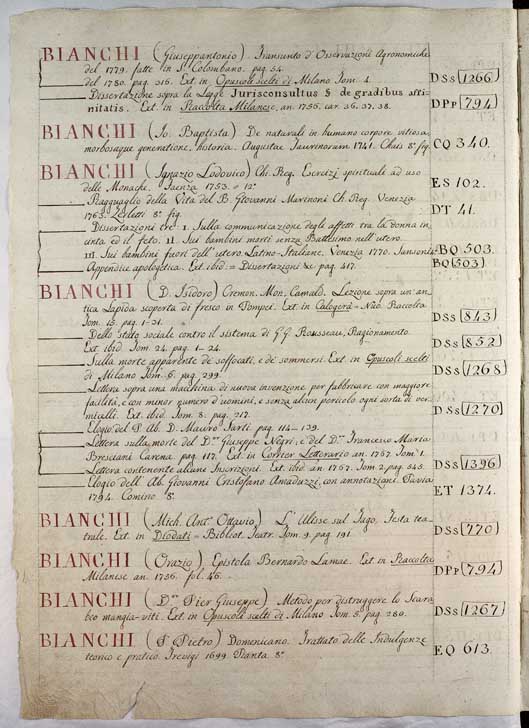 BIANCHI (Giuseppantonio) Transunto d'Osservazioni Agronomiche
del 1779. fatte in S. Colombano. pag. 54.
del 1780. pag. 316. Ext. in Opuscoli scelti di Milano Tom. 4. DSs (1266)
Dissertazione sopra la Legge Jurisconsultus § de gradibus affi-
nitatis. Ext. in Raccolta Milanese, an. 1756. car. 36. 37. 38. DPp (794)
BIANCHI (Jo. Baptista) De naturali in humano corpore vitiosa,
morbosaque generatione, historia. Augustae Taurinorum 1741. 8° fig. CQ 340.
BIANCHI (Ignazio Lodovico) Ch. Reg. Esercizi spirituali ad uso
delle Monache. Faenza 1753. 12° ES 102.
Ragguaglio della Vita del B. Giovanni Marinoni Ch. Reg. Venezia
1763. Zerletti 8° fig. DT 41.
Dissertazioni tre I. Sulla communicazione degli affetti tra la donna in-
cinta ed il feto. II. Sui bambini morti senza Battesimo nell'utero.
III. Sui bambini fuori dell'utero. Latino-Italiane. Venezia 1770. BQ 503.
Appendice apologetica. Ext. ibid. = Dissertazioni &c. pag. 417. BQ (503)
BIANCHI (D. Isidoro) Cremon. Mon. Camald. Lezione sopra un'an-
tica Lapida scoperta di fresco in Pompei. Ext. in Calogerà = Nuo. Raccolta
Tom. 15. pag. 1-31. DSs (843)
Dello stato sociale contro il sistema di G. G. Rousseau, Ragionamento
Ext. ibid. Tom. 24. pag. 1-24. DSs (852)
Sulla morte apparente de' soffocati, e de' sommersi. Ext. in Opuscoli scelti
di Milano Tom. 6. pag. 299. DSs (1268)
Lettera sopra una macchina di nuova invenzione per fabbricare con maggiore
facilità, e con minor numero d'uomini, e senza alcun pericolo ogni sorta di ver-
micelli. Ext. ibid. Tom. 8. pag. 217. DSs (1270)
Elogio del P. Ab. D. Mauro Sarti. pag. 114-139.
Lettera sulla morte del D.r Giuseppe Negri, e del D.r Francesco Maria
Bresciani Carena pag. 117. Ext. in Corrier Letterario an. 1767. Tom. 1.
Lettera contenente alcune Inscrizioni. Ext. ibid. an. 1767. Tom. 2. pag. 545. DSs (1396)
Elogio dell'Ab. Giovanni Cristofano Amaduzzi, con annotazioni. Pavia
1794. Comino 8° ET 1374.
BIANCHI (Mich. Ant.o Ottavio) L'Ulisse sul Tago. Festa tea-
trale. Ext. in Diodati = Bibliot. Teatr. Tom. 9. pag. 191. DSs (770)
BIANCHI (Orazio) Epistola Bernardo Lamae. Ext. in Raccolta
Milanese an. 1756. fol. 46. DPp (794)
BIANCHI (D.n Pier Giuseppe) Metodo per distruggere lo Scara-
beo mangia-viti. Ext. in Opuscoli scelti di Milano Tom. 5. pag. 280. DSs (1267)
BIANCHI (P. Pietro) Domenicano. Trattato delle Indulgenze
teorico e pratico. Trevigi 1699. Pianta 8° EQ 613.